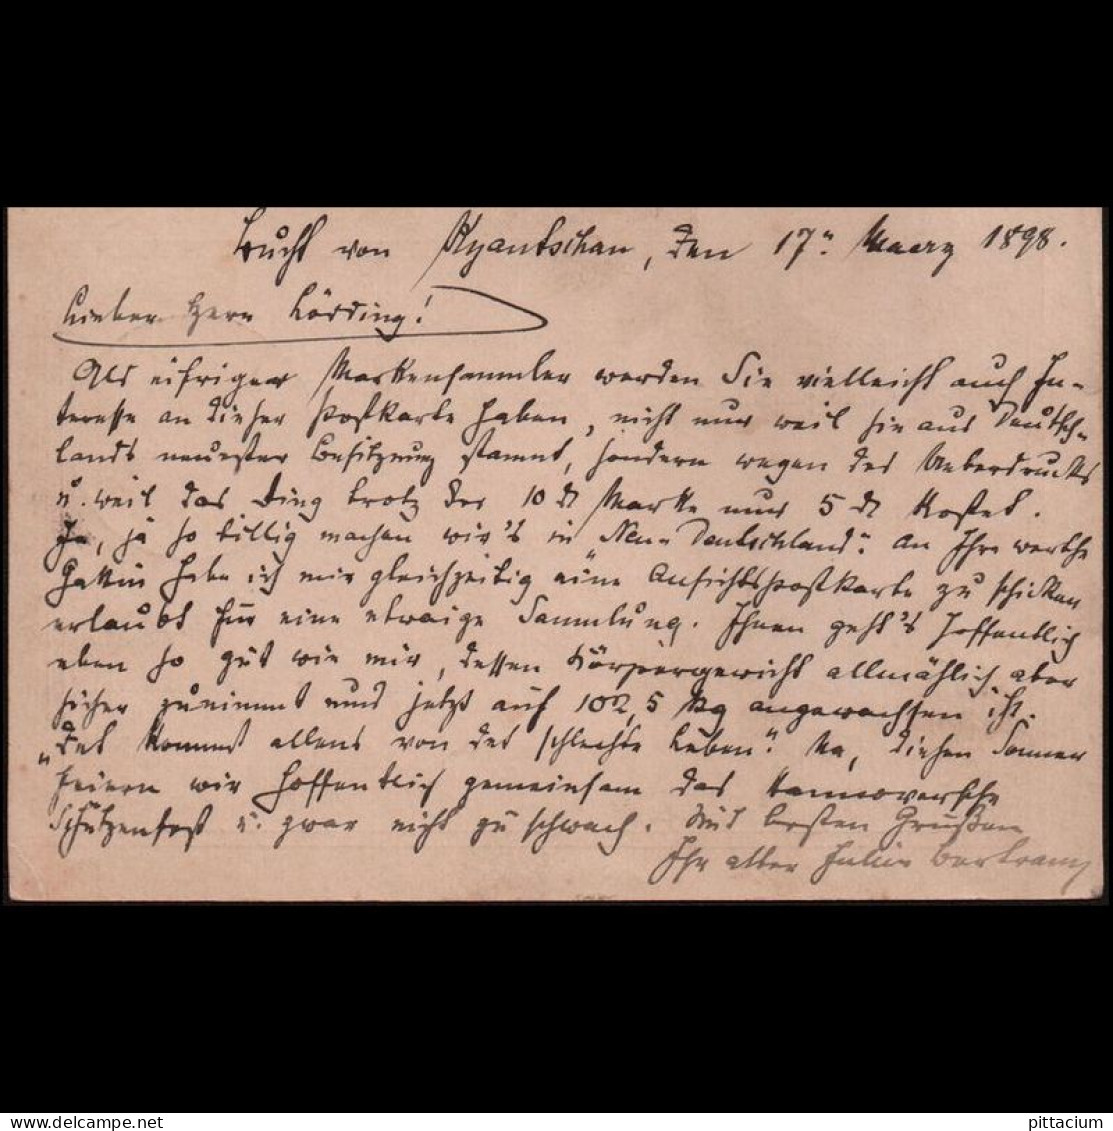 Bucht von Kyautschau, den 17ⁿ Maerz 1898.
Lieber Herr Lörding!
Als eifriger Markensammler werden Sie vielleicht auch In-
teresse an dieser Postkarte haben, nicht nur weil sie aus Deutsch-
lands neuester Besitzung stammt, sondern wegen des Ueberdrucks
u. weil das Ding trotz der 10 ₰ Marke nur 5 ₰ kostet.
Ja, ja so billig machen wir's in "Neu-Deutschland". An Ihre werthe
Gattin habe ich mir gleichzeitig eine Ansichtspostkarte zu schicken
erlaubt für eine etwaige Sammlung. Ihnen geht's hoffentlich
eben so gut wie mir, dessen Körpergewicht allmählich aber
sicher zunimmt und jetzt auf 102,5 Kg angewachsen ist.
"Det kommt allens von det schlechte Leben". Na, diesen Sommer
feiern wir hoffentlich gemeinsam das Hannoversche
Schützenfest u. zwar nicht zu schwach. Mit besten Grüßen
Ihr alter Julius Bertram
delcampe.net
pittacium